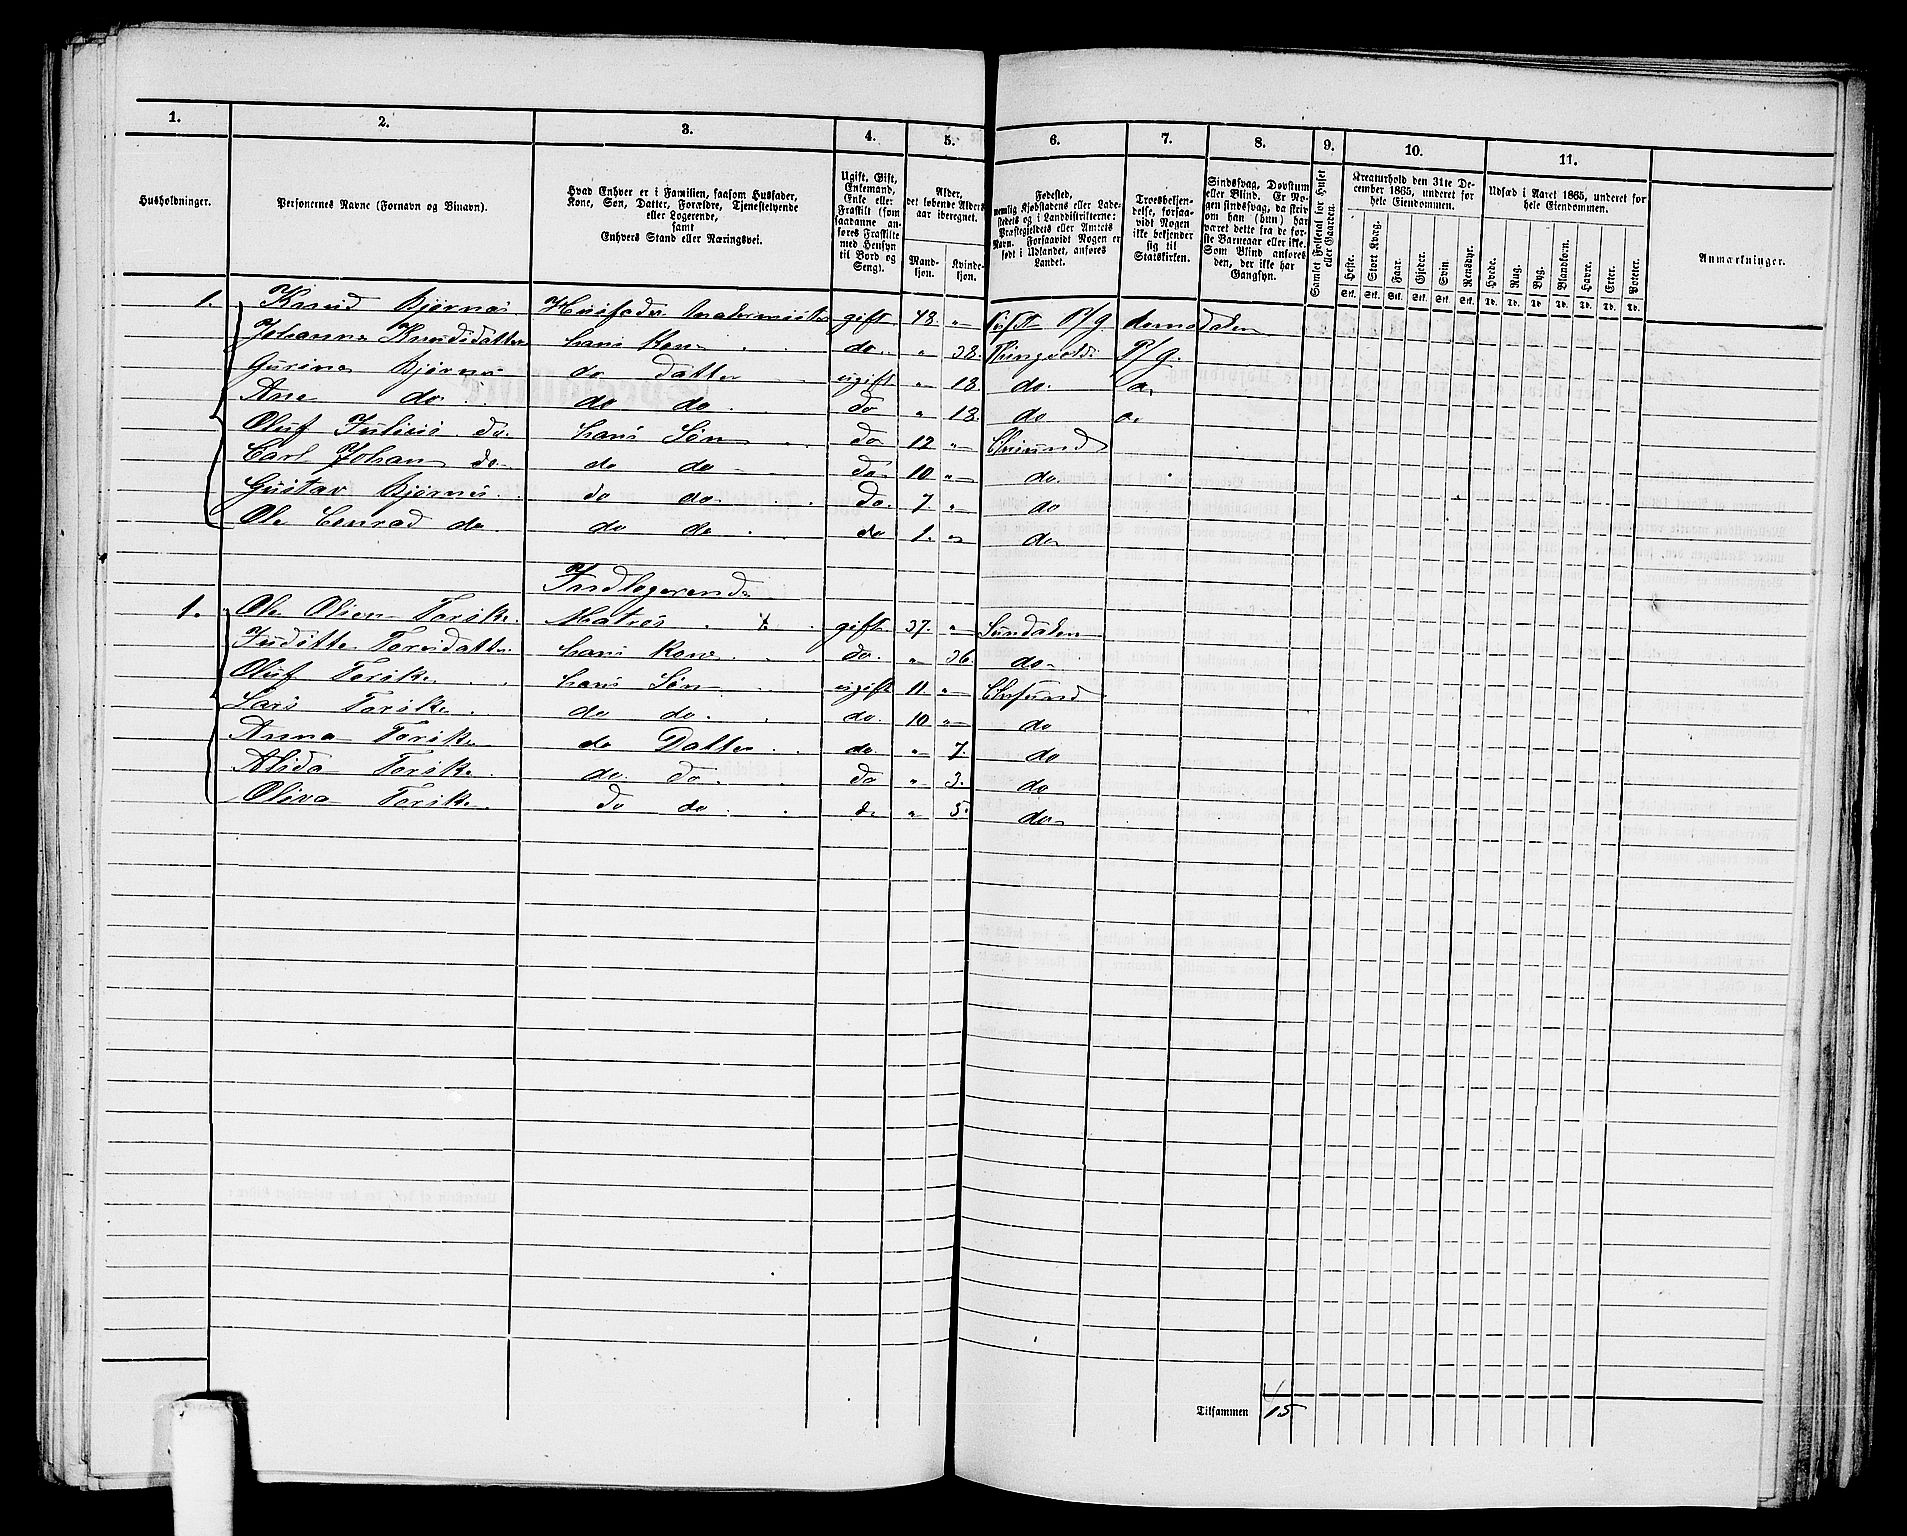 1. 2. 3. 4. 5. 6. 7. 8. 9. 10. 11.
Husholdninger.
Personernes Navne (Fornavn og Binavn).
Hvad Enhver er i Familien, saasom Husfader,
Kone, Søn, Datter, Forældre, Tjenestetyende
eller Logerende,
samt
Enhvers Stand eller Næringsvei.
Ugift, Gift,
Enkemand,
Enke eller
Fraskilt (som
saadanne an-
føres Fraskilte
med Hensyn
til Bord og
Seng).
Alder,
det løbende Alders-
aar iberegnet.
Mand-
kjøn.
Kvinde-
kjøn.
Fødested,
nemlig Kjøbstadens eller Lade-
stedets og i Landdistrikterne:
Præstegjeldets eller Amtets
Navn. Forsaavidt Nogen er
født i Udlandet, anføres
Landet.
Troesbekjen-
delse, forsaa-
vidt Nogen
ikke bekjender
sig til
Statskirken.
Sindssvag, Døvstum
eller Blind. Er No-
gen sindssvag, da skriv
om han (hun) har
været dette fra de før-
ste Barneaar eller ikke.
Som Blind anføres
den, der ikke har
Gangsyn.
Samlet Folketal for Huset
eller Gaarden.
Kreaturhold den 31te De-
cember 1865, underet for
hele Eiendommen.
Heste. Stort Kvæg. Faar. Gjeder. Svin. Rensdyr.
Stk. Stk. Stk. Stk. Stk. Stk.
Udsæd i Aaret 1865, underet for
hele Eiendommen.
Hvede. Rug. Byg. Blandkorn. Havre. Erter. Poteter.
Td. Td. Td. Td. Td. Td. Td.
Anmærkninger.
1. Knud Bjørnøi Husfader gift 48. " P/g. Romsdalen
Johanne Knudsdatter hans Kone do. " 38. Thingvold P/g.
Gurine Bjørnøi do Datter ugift " 18 do. a
Ane do. do do. do " 18. do a.
Oluf Julius do. hans Søn do 12 " Chrsund
Carl Johan do do do do 10 " do.
Gustav Bjørnøi do do. do. 7. " do
Ole Conrad do do do do 1. " do
Indlogerende
1. Ole Olsen Torske. Matros gift 37. " Sundalen
Toresdatter hans Kone do. " 36 do.
Oluf Torske hans Søn ugift 11 " Chrsund
Lars Torske. do do. do. 10 " do
Anna Torske do Datter do " 7. do
Alida Torske. do. do. do " 3. do
Oliva Torske. do do d. " 5. do
Tilsammen 15